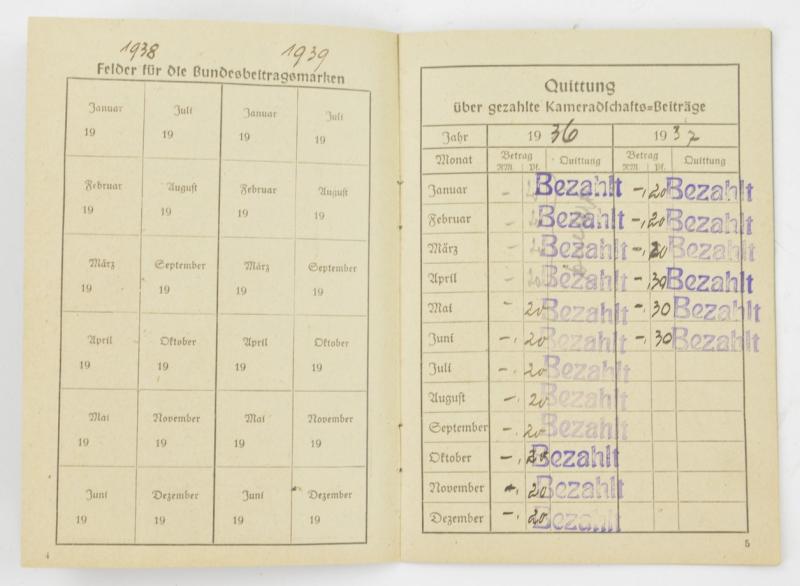 1938 1939
Felder für die Bundesbeitragsmarken
Januar Juli Januar Juli
19 19 19 19
Februar August Februar August
19 19 19 19
März September März September
19 19 19 19
April Oktober April Oktober
19 19 19 19
Mai November Mai November
19 19 19 19
Juni Dezember Juni Dezember
19 19 19 19
4
Quittung
über gezahlte Kameradschafts=Beiträge
Jahr 1936 1937
Monat Betrag Quittung Betrag Quittung
RM. Pf. RM. Pf.
Januar - Bezahlt -,20 Bezahlt
Februar - Bezahlt -,20 Bezahlt
März - Bezahlt -,20 Bezahlt
April - 20 Bezahlt -,30 Bezahlt
Mai - 20 Bezahlt -,30 Bezahlt
Juni -,20 Bezahlt -,30 Bezahlt
Juli -,20 Bezahlt
August -,20 Bezahlt
September -,20 Bezahlt
Oktober -,20 Bezahlt
November -,20 Bezahlt
Dezember -,20 Bezahlt
5